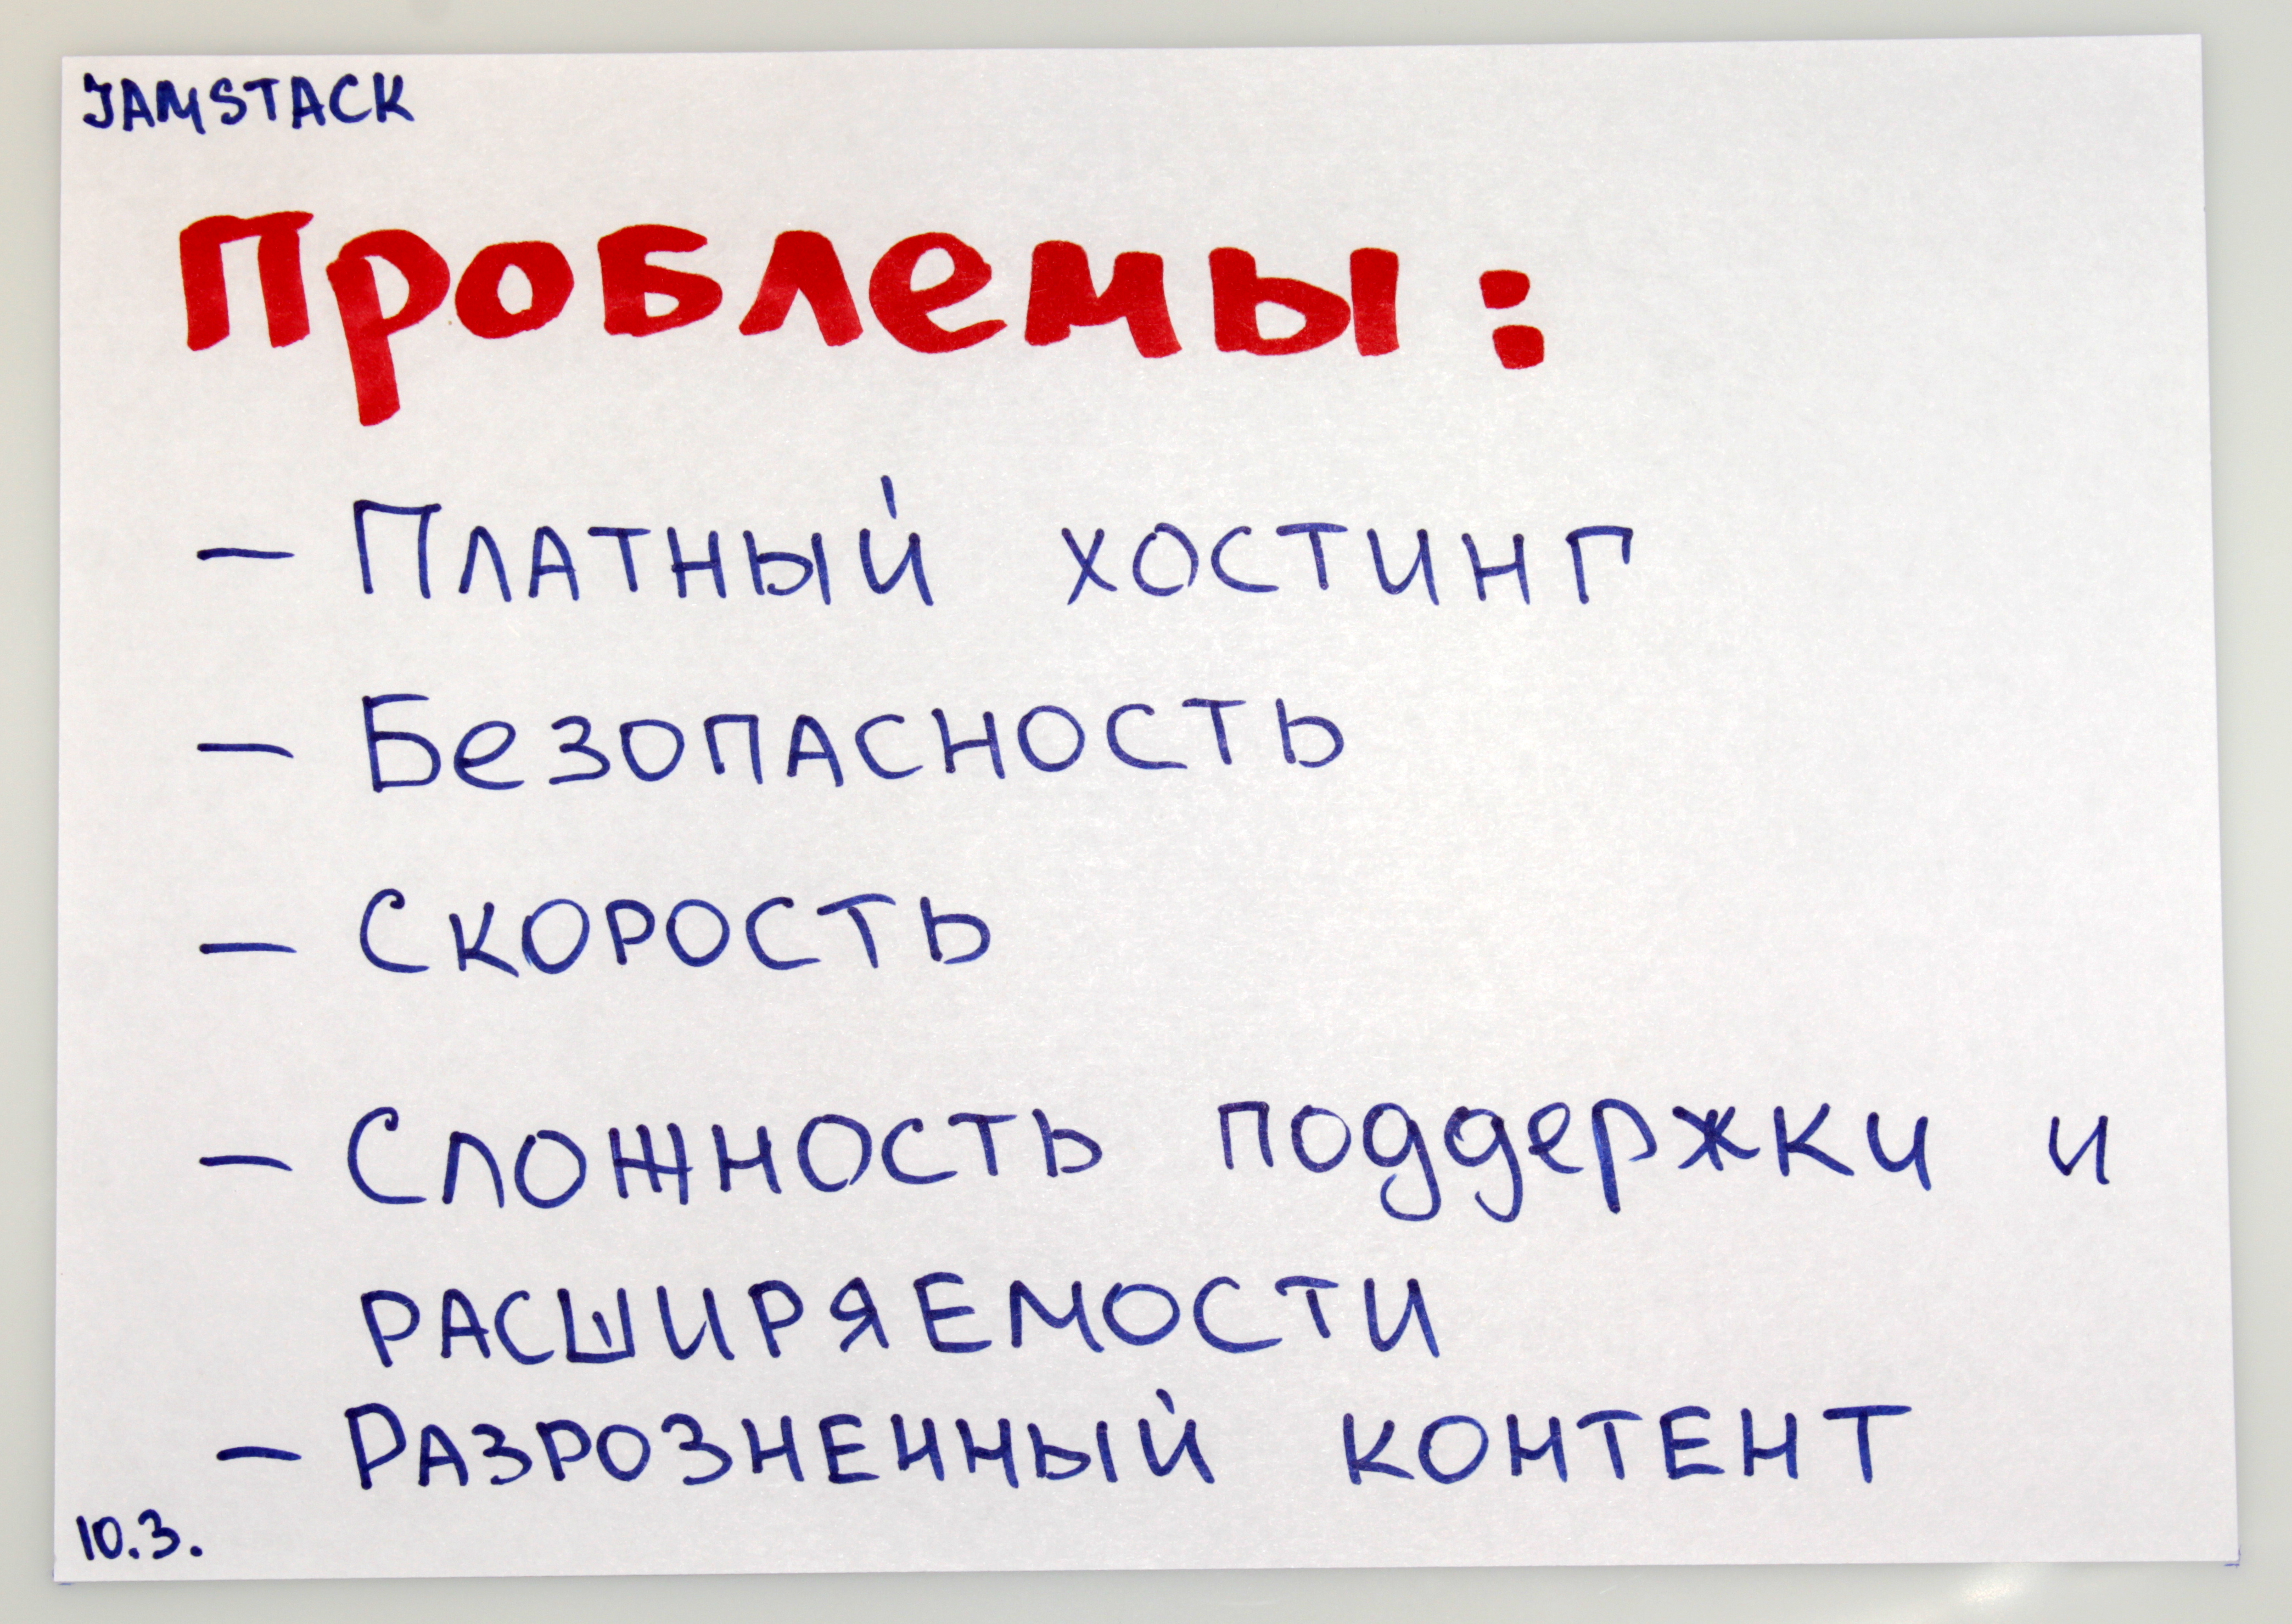 JAMSTACK
Проблемы:
– Платный хостинг
– Безопасность
– Скорость
– Сложность поддержки и
расширяемости
– Разрозненный контент
10.3.